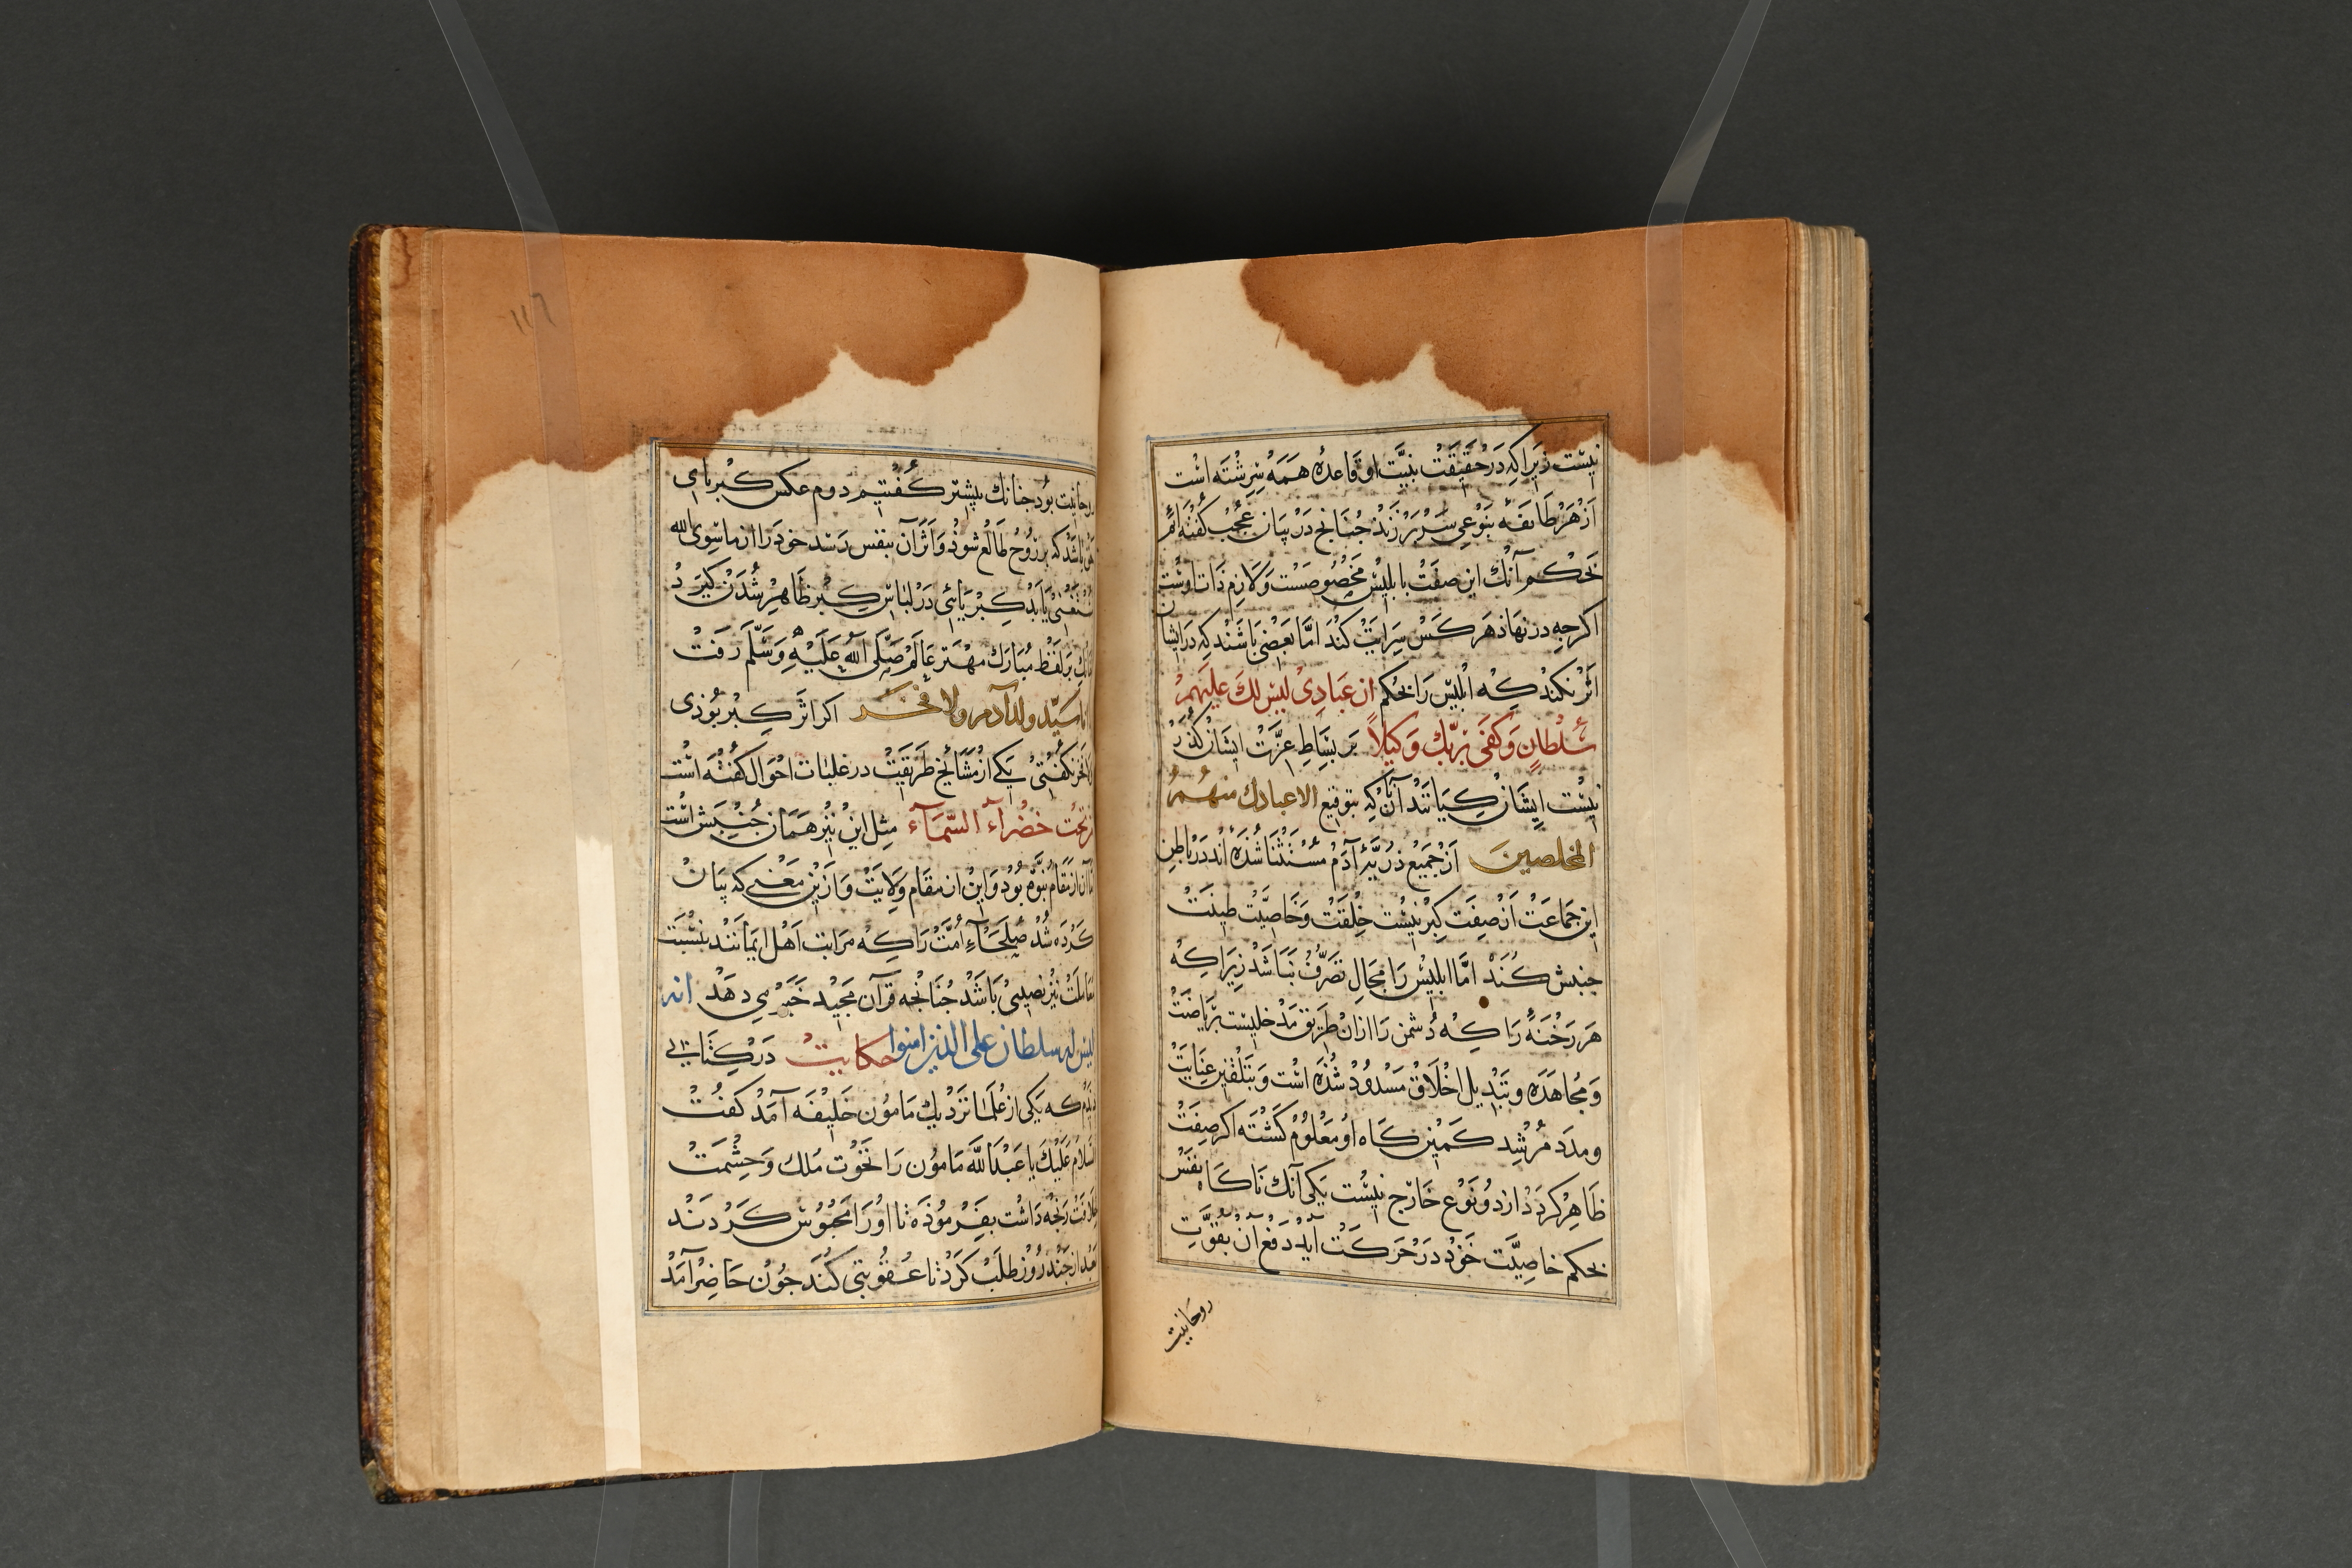 نیست زیرا که در حقیقت بنیت او قاعده همه سرشته است
از هر طایفه بنوعی سر بر زند جنانج در بیان عجب کفته ام
بحکم آنک این صفت بابلیس مخصوصست و لازم ذات اوست
اکرجه در نهاد هر کس سرایت کند اما بعضی باشند که در ایشان
اثر نکند که ابلیس را بحکم ان عبادی لیس لك علیهم
سلطان وکفی بربك وکیلاً بر بساط عزت ایشان کذر
نیست ایشان کیانند آنان که بتوقیع الا عبادك منهم
المخلصین از جمیع ذریه آدم مستثنا شده اند در باطن
این جماعت از صفت کبر نیست خلقت و خاصیت طینت
جنبش کند اما ابلیس را مجال تصرف نباشد زیرا که
هر رخنه را که دشمن را از ان طریق مدخلیست بریاضت
و مجاهده و تبدیل اخلاق مسدود شده است و بتلقین عنایت
و مدد مرشد کمین کاه او معلوم کشته اکر صفت
ظاهر کردد از دو نوع خارج نیست یکی آنك ناکاه نفس
بحکم خاصیت خود در حرکت آید دفع آن بقوت
روحانیت
۱۱٦
روحانیت بود جنانك بیشتر کفتیم دوم عکس کبریای
حق باشد که بر روح طالع شود و اثر آن بنفس رسد خود را از ما سوی الله
مستغنی یابد کبریائی در لباس کبر ظاهر شدن کیرد
جنانك بر لفظ مبارك مهتر عالم صلی الله علیه وسلم رفت
انا سید ولد آدم ولا فخر اکر اثر کبر بودی
لا فخر نکفتی یکی از مشایخ طریقت در غلبات احوال کفته است
من تحت خضرآء السمآء مثل این نیز همان جنبش است
اما آن از مقام نبوه بود و این از مقام ولایت و ازین معنی که بیان
کرده شد صلحآء امت را که مراتب اهل ایمانند بنسبت
معاملت نیز نصیبی باشد جنانجه قرآن مجید خبر می دهد انه
لیس له سلطان علی الذین امنوا حکایت در کتابی
دیدم که یکی از علما نزدیك مامون خلیفه آمد کفت
السلام علیك یا عبد الله مامون را نخوت ملك و حشمت
خلافت رنجه داشت بفرموده تا او را محبوس کردند
بعد از جند روز طلب کرد تا عقوبتی کند جون حاضر آمد